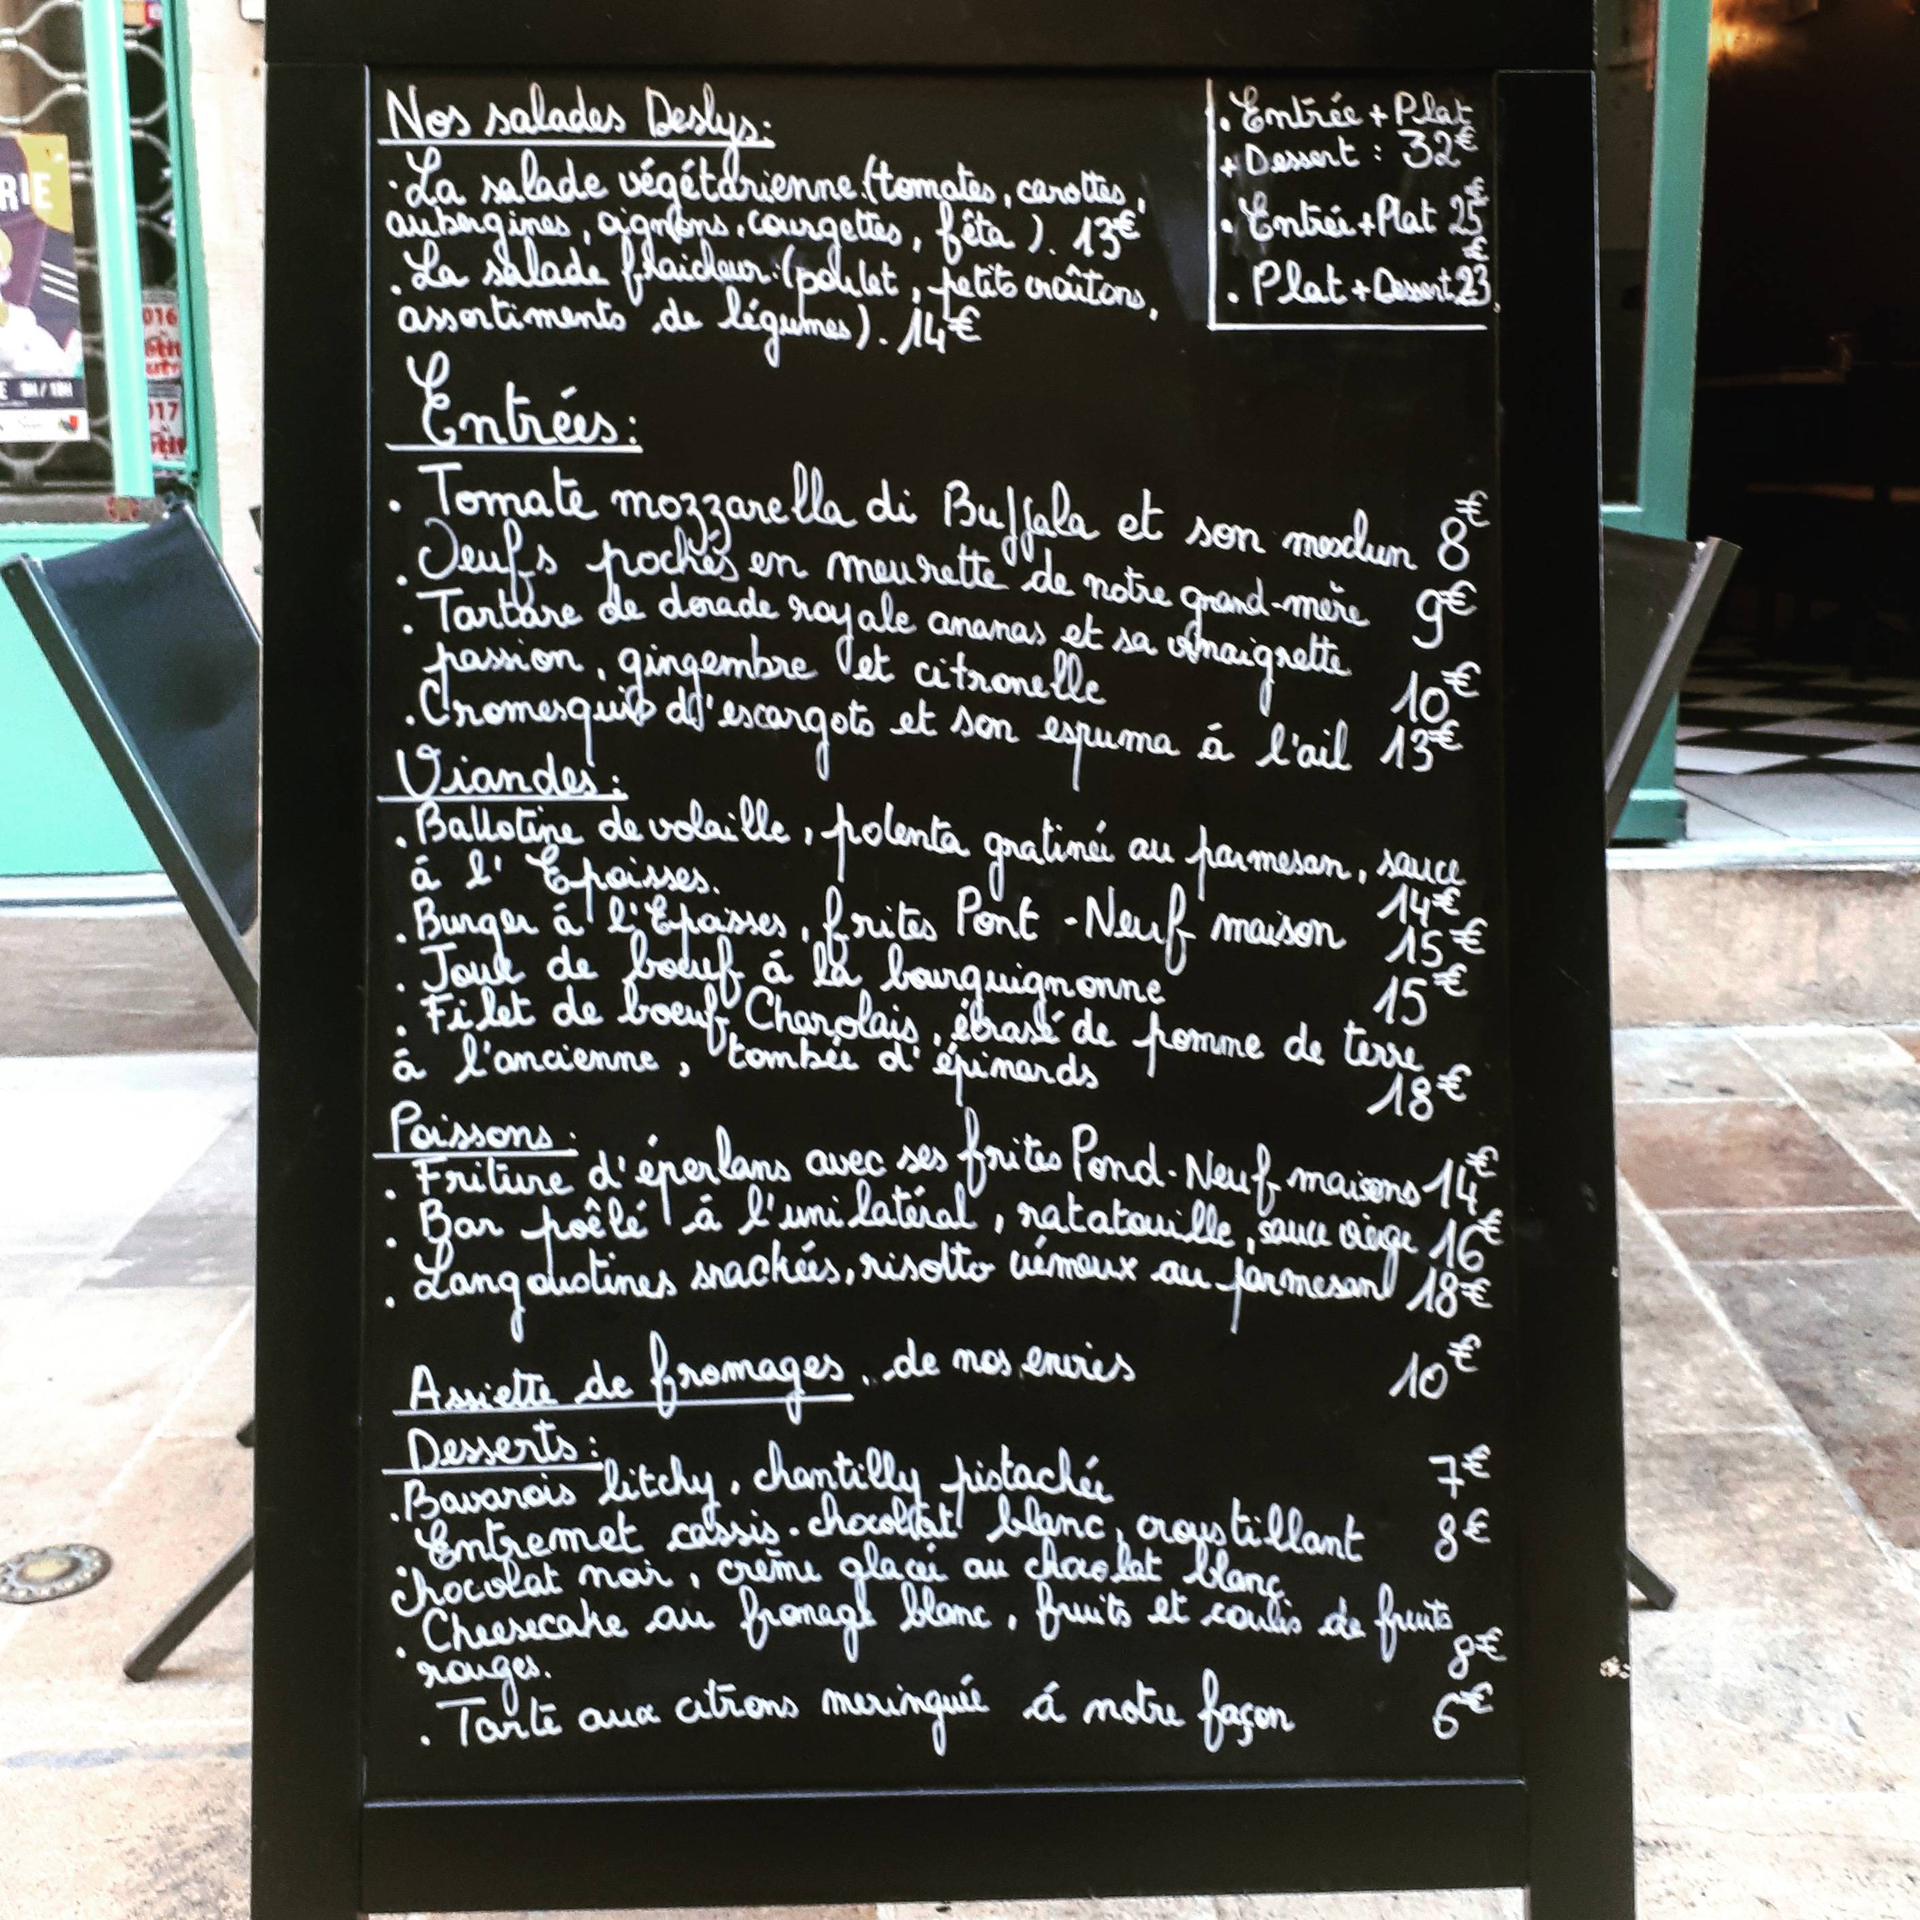 Nos salades Deslys:
. La salade végétarienne (tomates, carottes,
aubergines, oignons, courgettes, fêta ). 13€
. La salade fraicheur: (poulet, petits croûtons,
assortiments de légumes). 14€
. Entrée + Plat
+ Dessert : 32€
. Entrée + Plat 25€
. Plat + Dessert 23€
Entrées:
. Tomate mozzarella di Buffala et son mesclun 8€
. Oeufs pochés en meurette de notre grand-mère 9€
. Tartare de dorade royale ananas et sa vinaigrette
passion, gingembre et citronelle 10€
. Cromesquis d'escargots et son espuma á l'ail 13€
Viandes:
. Ballotine de volaille, polenta gratinée au parmesan, sauce
á l'Epoisses. 14€
. Burger á l'Epoisses, frites Pont-Neuf maison 15€
. Joue de boeuf á la bourguignonne 15€
. Filet de boeuf Charolais, écrasé de pomme de terre
á l'ancienne, tombée d'épinards 18€
Poissons:
. Friture d'éperlans avec ses frites Pond-Neuf maisons 14€
. Bar poêlé á l'unilatéral, ratatouille, sauce vierge 16€
. Langoustines snackées, risotto crémeux au parmesan 18€
Assiette de fromages, de nos envies 10€
Desserts:
. Bavarois litchy, chantilly pistachée 7€
. Entremet cassis. chocolat blanc, croustillant 8€
chocolat noir, crème glacée au chocolat blanc
. Cheesecake au fromage blanc, fruits et coulis de fruits
rouges. 8€
. Tarte aux citrons meringuée á notre façon 6€
RIE
9H / 18H
016
017